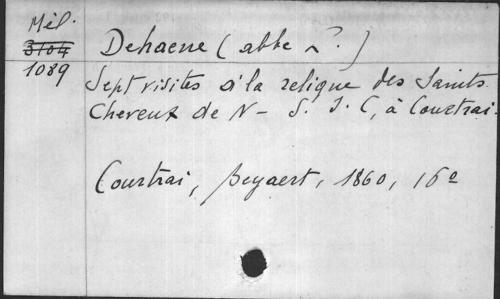 Mél.
3104
1089
Dehaene (abbé ?.)
Sept visites à la relique des Saints
Cheveux de N- S. J. C, à Courtrai.
Courtrai, Beyaert, 1860, 16º